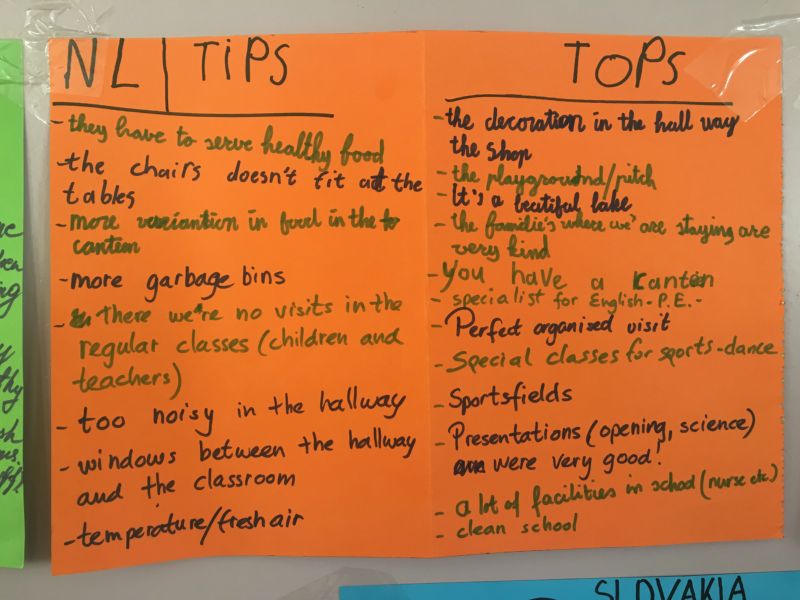 NL | TiPS
- they have to serve healthy food
- the chairs doesn't fit at the
tables
- more variantion in food in the
canteen
- more garbage bins
- There we're no visits in the
regular classes (children and
teachers)
- too noisy in the hallway
- windows between the hallway
and the classroom
- temperature/fresh air
TOPS
- the decoration in the hall way
the shop
- the playground/pitch
- It's a beatiful lake
- the familie's where we're are staying are
very kind
- You have a canten
- specialist for English - P.E. -
- Perfect organised visit
- Special classes for sports-dance
- Sportsfields
- Presentations (opening, science)
were very good!
- a lot of facilities in school (nurse etc.)
- clean school
SLOVAKIA